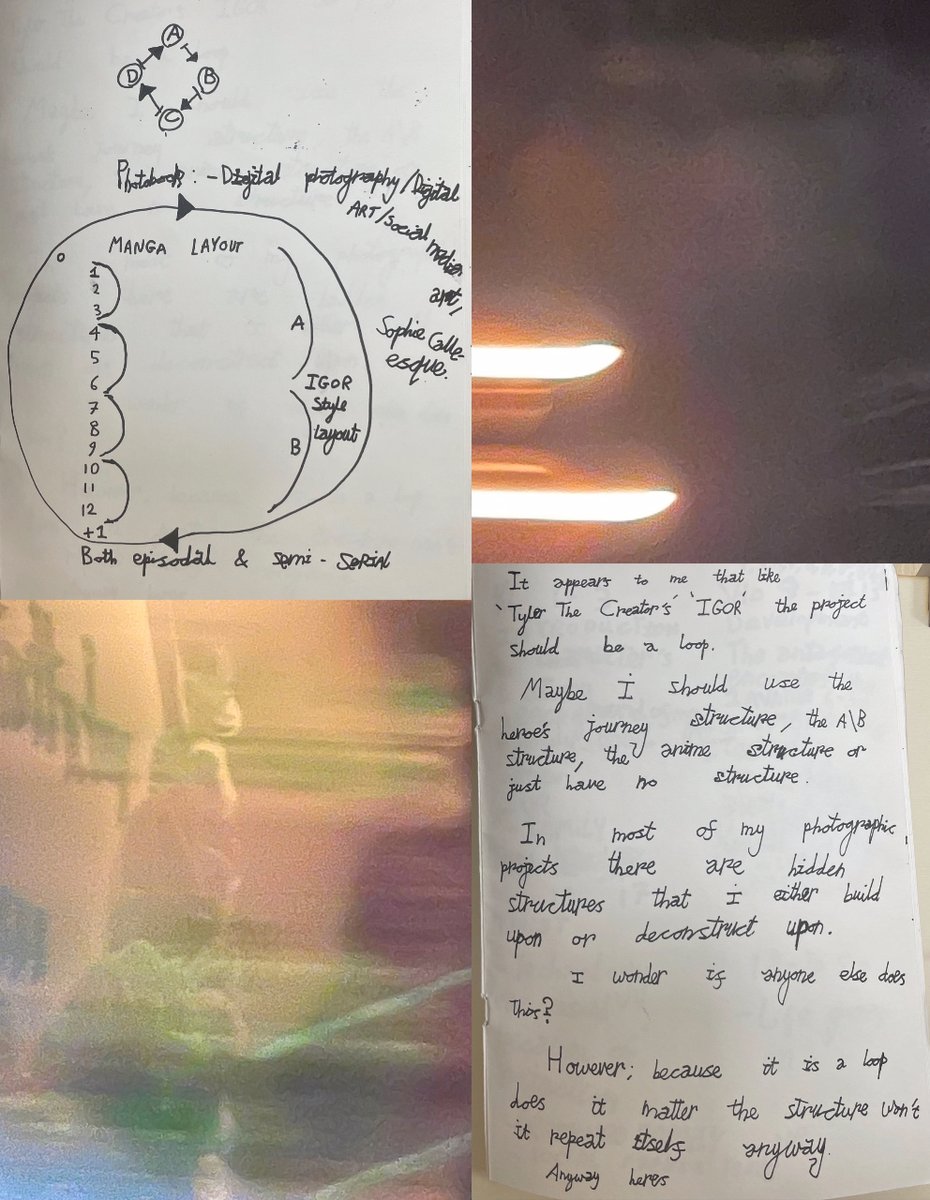 A
B
C
D
Photobooks: - Digital photography/Digital
ART/Social media
art,
Sophie Calle-
esque.
MANGA LAYOUT
0
1
2
3
4
5
6
7
8
9
10
11
12
+1
A
IGOR
Style
Layout
B
Both episodal & semi-serial
It appears to me that like
'Tyler The Creator's' 'IGOR' the project
should be a loop.
Maybe I should use the
heroe's journey structure, the A\B
structure, the anime structure or
just have no structure.
In most of my photographic
projects there are hidden
structures that I either build
upon or deconstruct upon.
I wonder if anyone else does
this?
However; because it is a loop
does it matter the structure won't
it repeat itself anyway?
Anyway heres